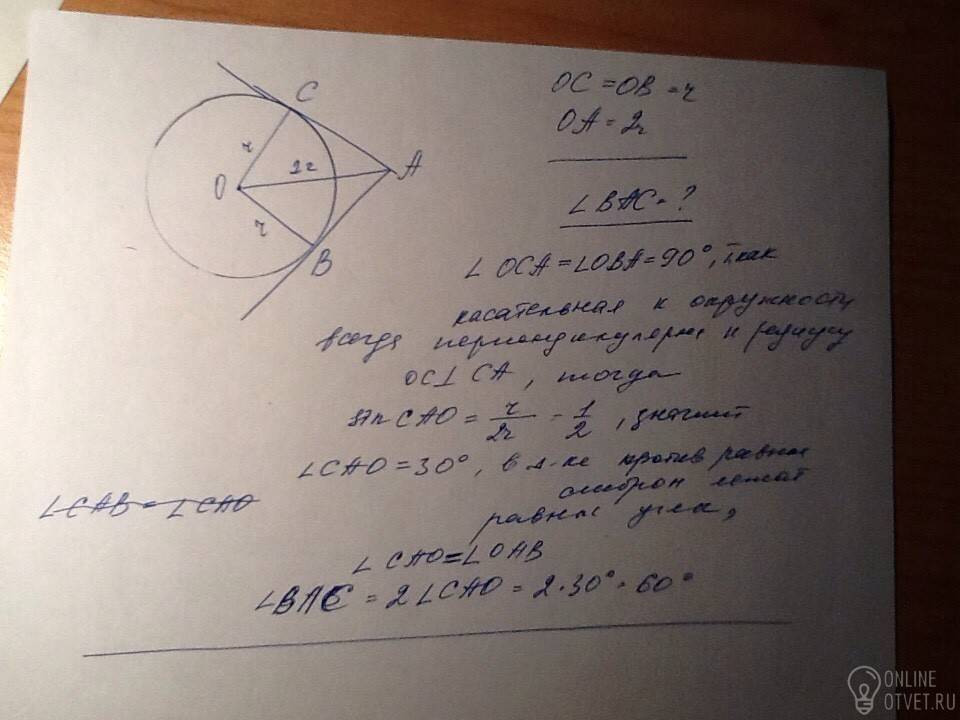 C
r
2r
O
A
r
B
OC = OB = r
OA = 2r
∠BAC = ?
∠OCA = ∠OBA = 90°, т.как
касательная к окружности
всегда перпендикулярна к радиусу
OC⊥CA, тогда
sin CAO = r/2r = 1/2, значит
∠CAO = 30°, в Δ-ке против равных
сторон лежат
равные углы,
∠CAB = ∠CAO
∠CAO = ∠OAB
∠BAC = 2∠CAO = 2·30° = 60°
ONLINE
OTVET.RU